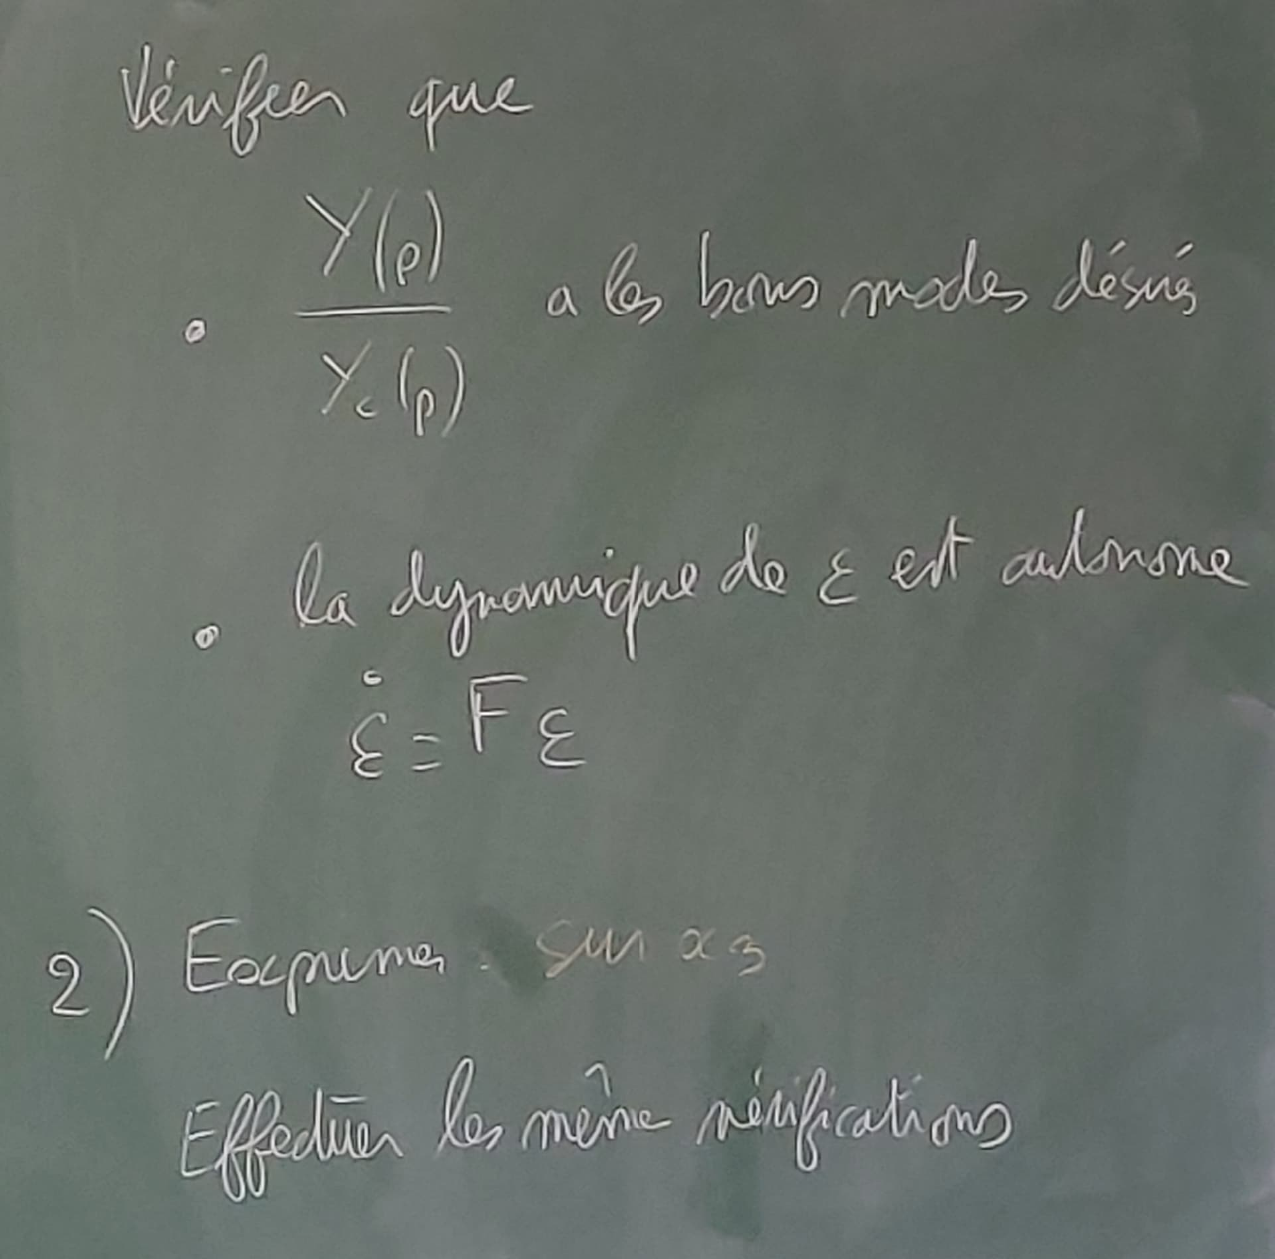 Vérifier que
• Y(p) / Yc(p) a les bons modes désirés
• la dynamique de ε est autonome
ε̇ = F ε
2) Exprimer sur x3
Effectuer les même vérifications